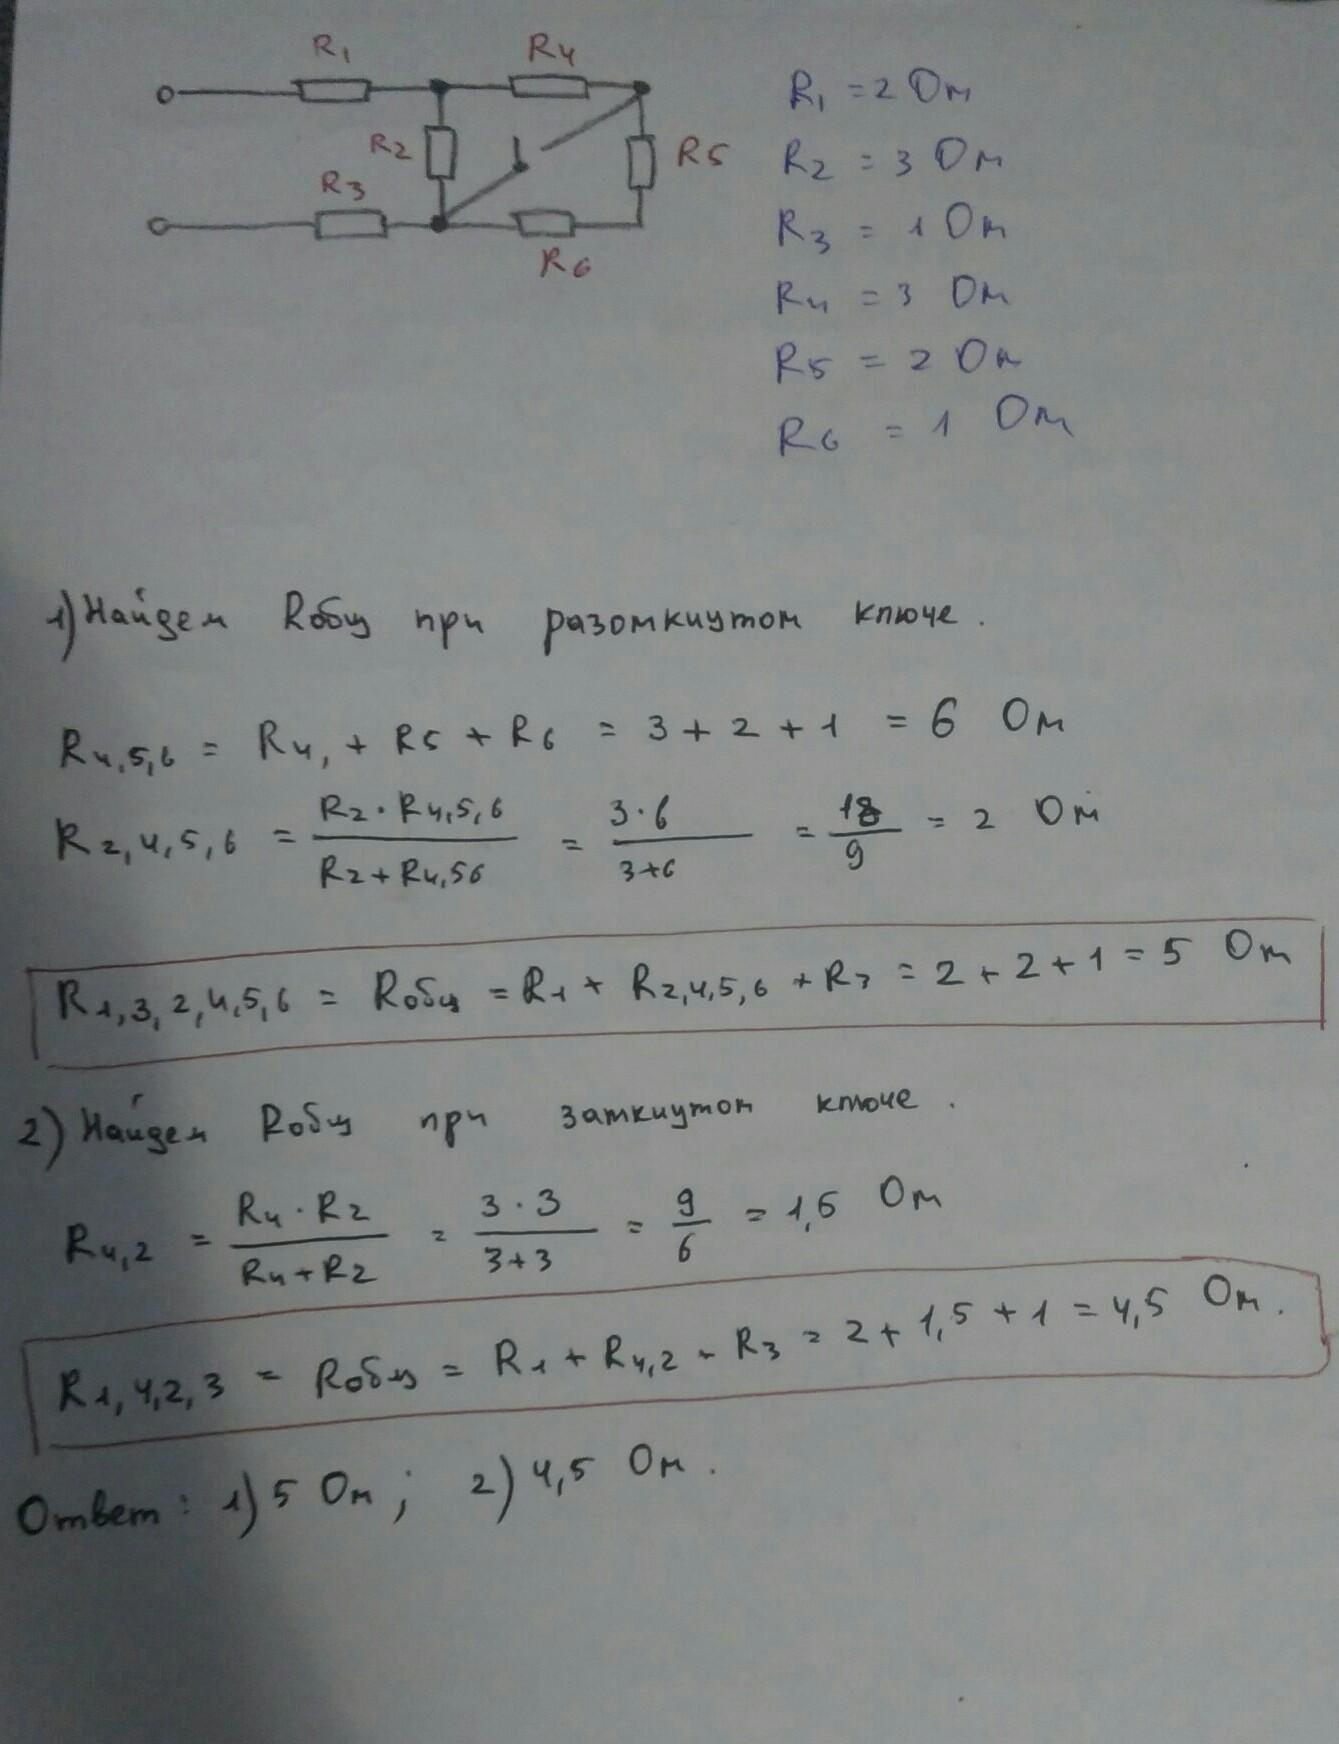 R1 R4
R2 R5
R3
R6
R1 = 2 Ом
R2 = 3 Ом
R3 = 1 Ом
R4 = 3 Ом
R5 = 2 Ом
R6 = 1 Ом
1) Найдем Rобщ при разомкнутом ключе.
R4,5,6 = R4, + R5 + R6 = 3 + 2 + 1 = 6 Ом
R2,4,5,6 = R2 · R4,5,6 / R2 + R4,56 = 3 · 6 / 3+6 = 18 / 9 = 2 Ом
R1,3,2,4,5,6 = Rобщ = R1 + R2,4,5,6 + R3 = 2 + 2 + 1 = 5 Ом
2) Найдем Rобщ при замкнутом ключе.
R4,2 = R4 · R2 / R4 + R2 = 3 · 3 / 3+3 = 9 / 6 = 1,5 Ом
R1,4,2,3 = Rобщ = R1 + R4,2 + R3 = 2 + 1,5 + 1 = 4,5 Ом.
Ответ: 1) 5 Ом; 2) 4,5 Ом.